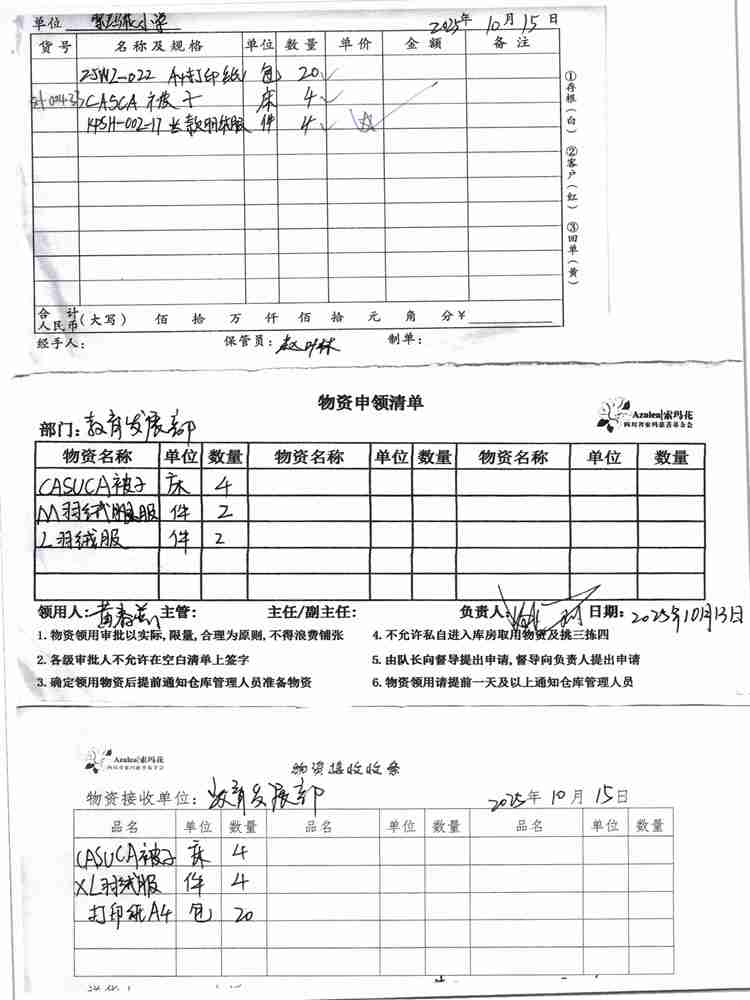 单位 索玛花小学 2025年 10月 15日
货号 名称及规格 单位 数量 单价 金额 备注
ZJWZ-022 A4打印纸 包 20
CASCA 被子 床 4
KPSH-002-17 长款羽绒服 件 4
①存根(白) ②客户(红) ③回单(黄)
合计人民币(大写) 佰 拾 万 仟 佰 拾 元 角 分 ¥
经手人: 保管员: 制单:
物资申领清单
Azalea|索玛花
四川省索玛慈善基金会
部门: 教育发展部
物资名称 单位 数量 物资名称 单位 数量 物资名称 单位 数量
CASUCA被子 床 4
M羽绒服 件 2
L羽绒服 件 2
领用人: 主管: 主任/副主任: 负责人: 日期: 2025年10月13日
1.物资领用审批以实际,限量,合理为原则,不得浪费铺张 4.不允许私自进入库房取用物资及挑三拣四
2.各级审批人不允许在空白清单上签字 5.由队长向督导提出申请,督导向负责人提出申请
3.确定领用物资后提前通知仓库管理人员准备物资 6.物资领用请提前一天及以上通知仓库管理人员
Azalea|索玛花
四川省索玛慈善基金会
物资接收收条
物资接收单位: 教育发展部 2025年 10月 15日
品名 单位 数量 品名 单位 数量 品名 单位 数量
CASUCA被子 床 4
XL羽绒服 件 4
打印纸A4 包 20